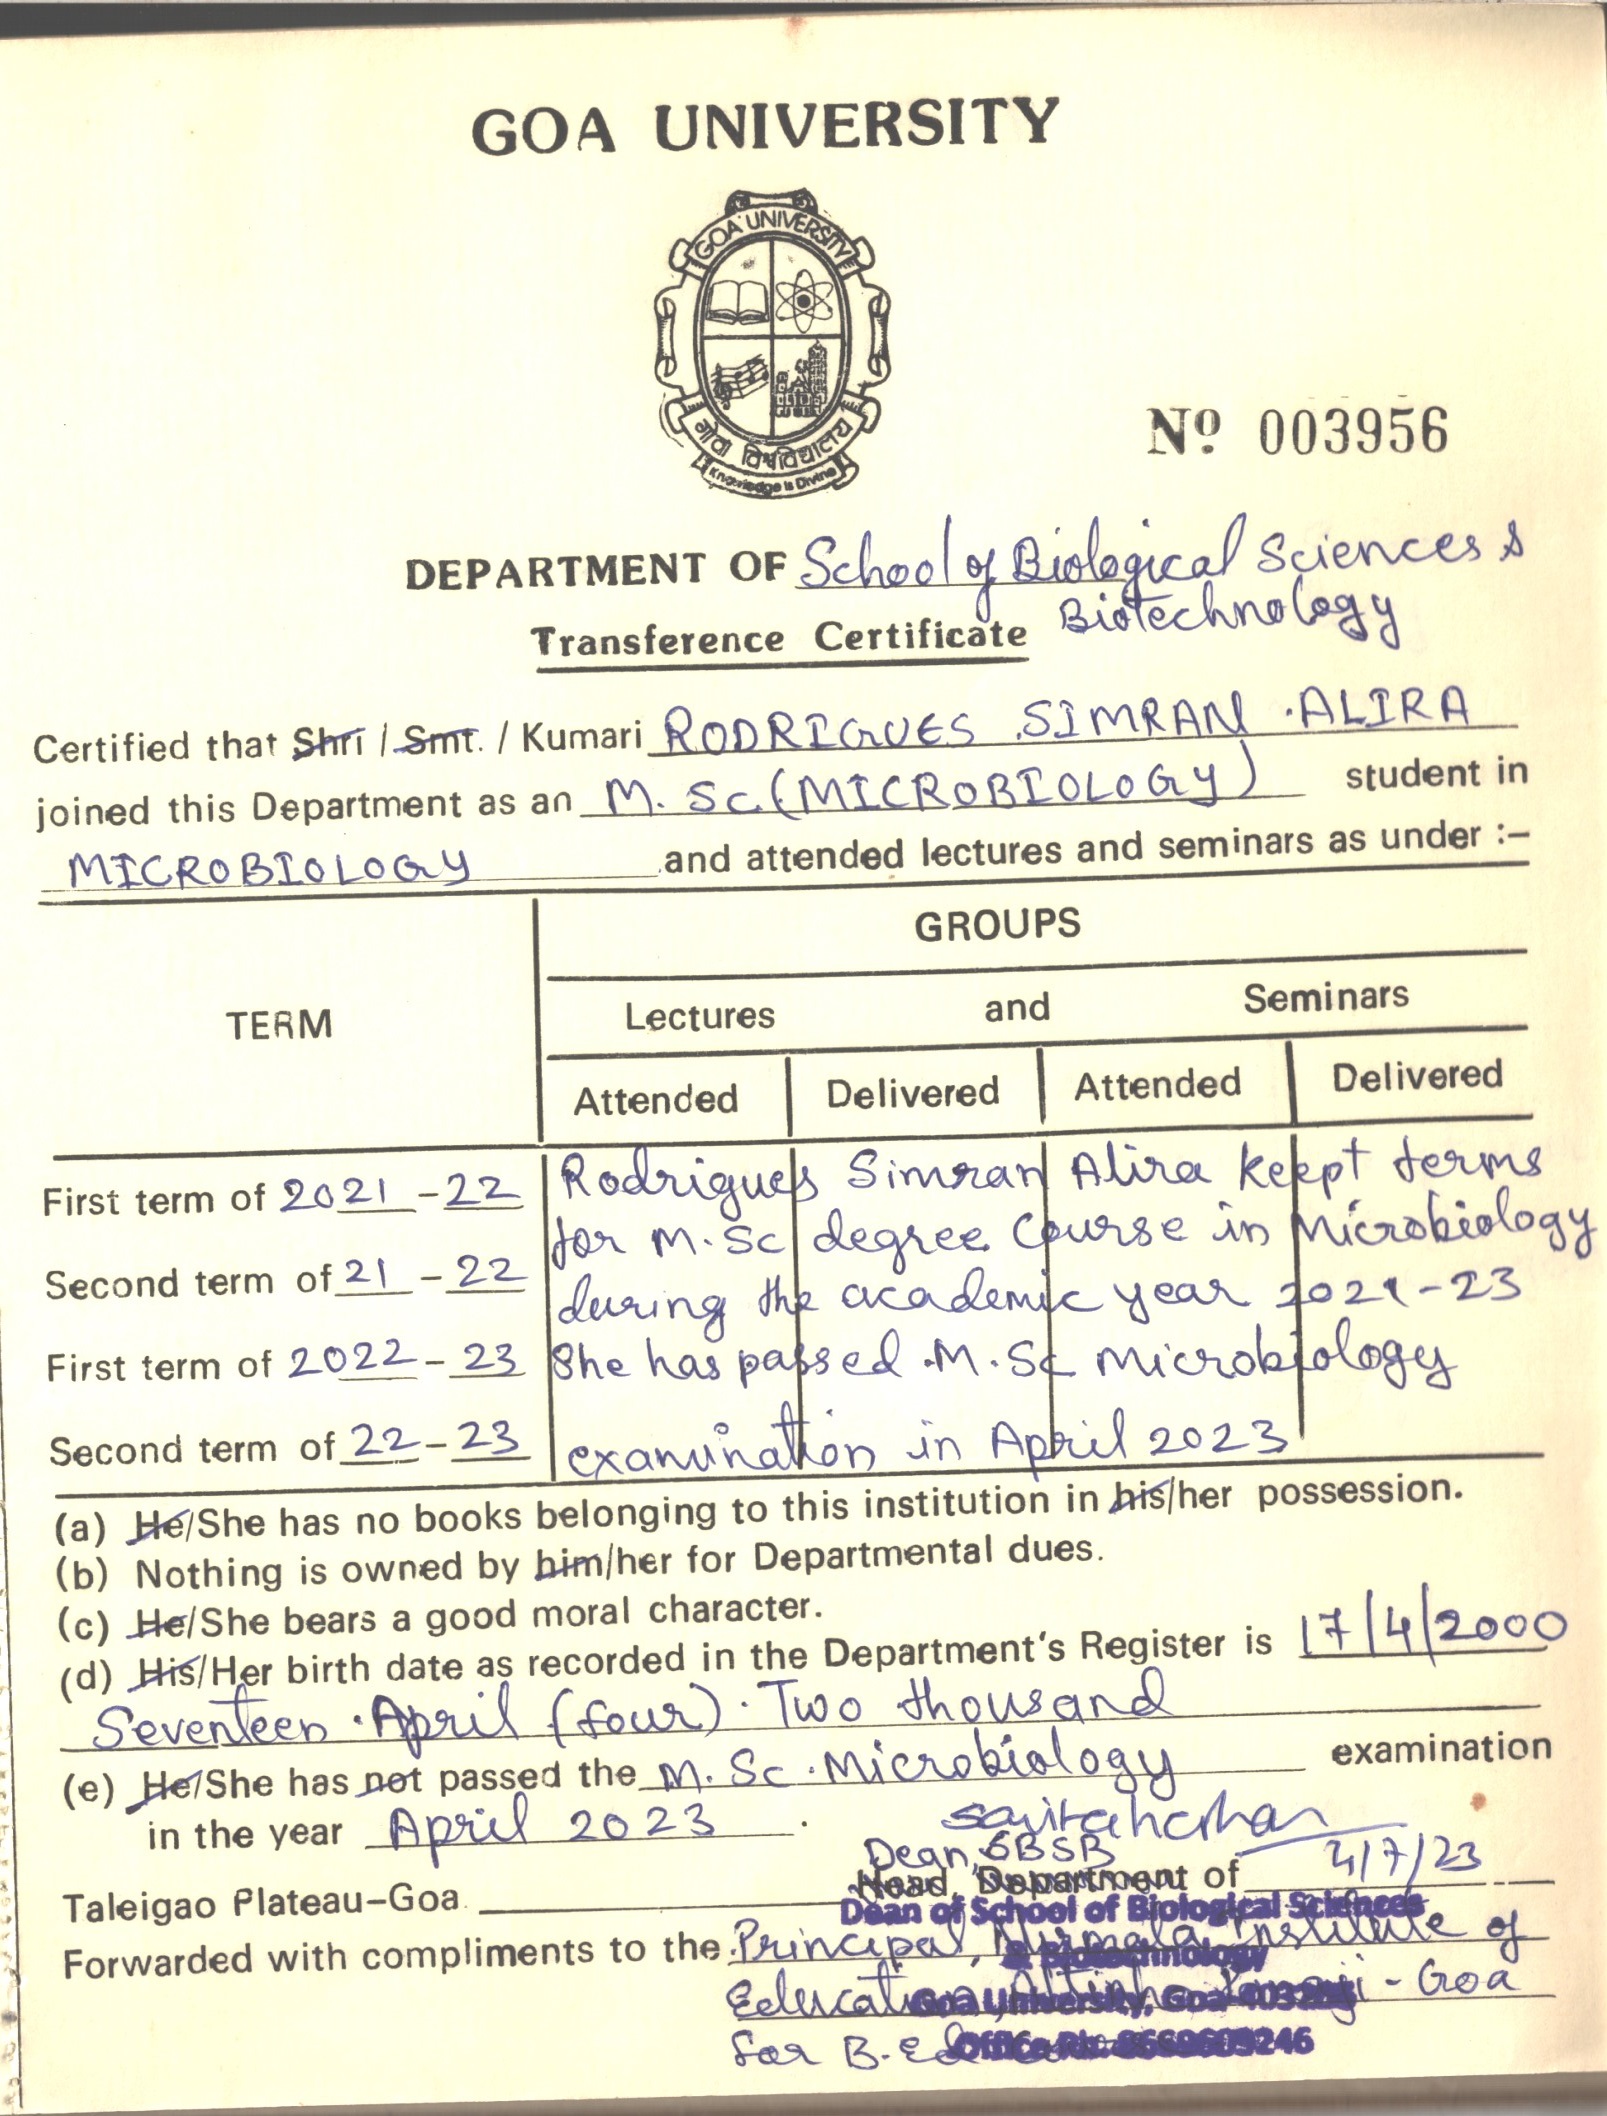 GOA UNIVERSITY
GOA UNIVERSITY
गोवा विश्वविद्यालय
Knowledge is Divine
Nº 003956
DEPARTMENT OF School of Biological Sciences &
Biotechnology
Transference Certificate
Certified that Shri / Smt. / Kumari RODRIGUES SIMRAN ALIRA
joined this Department as an M. Sc. (MICROBIOLOGY) student in
MICROBIOLOGY and attended lectures and seminars as under :–
TERM
GROUPS
Lectures and Seminars
Attended Delivered Attended Delivered
First term of 2021 - 22 Rodrigues Simran Alira keept terms
for M.Sc degree Course in Microbiology
Second term of 21 - 22 during the academic year 2021-23
First term of 2022 - 23 She has passed M.Sc Microbiology
Second term of 22 - 23 examination in April 2023
(a) He/She has no books belonging to this institution in his/her possession.
(b) Nothing is owned by him/her for Departmental dues.
(c) He/She bears a good moral character.
(d) His/Her birth date as recorded in the Department's Register is 17/4/2000
Seventeen April (four) Two thousand
(e) He/She has not passed the M. Sc. Microbiology examination
in the year April 2023.
Dean, SBSB
Head, Department of 4/7/23
Taleigao Plateau–Goa.
Dean of School of Biological Sciences
& Biotechnology
Goa University, Goa
Office Ph. 8669609246
Forwarded with compliments to the Principal, Nirmala Institute of
Education, Altinho Panaji - Goa
for B.Ed